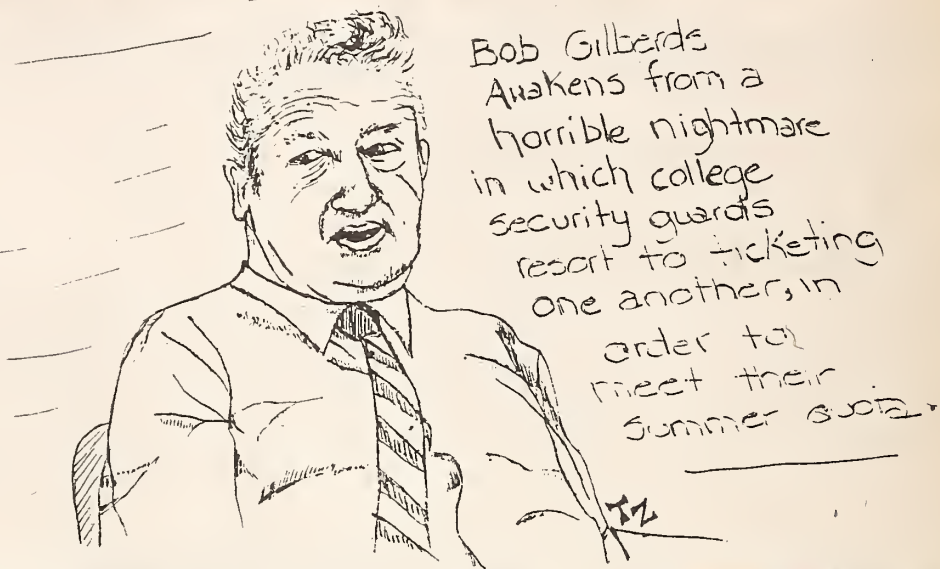 Bob Gilberds
Awakens from a
horrible nightmare
in which college
security guards
resort to ticketing
one another, in
order to
meet their
summer quota.
TZ